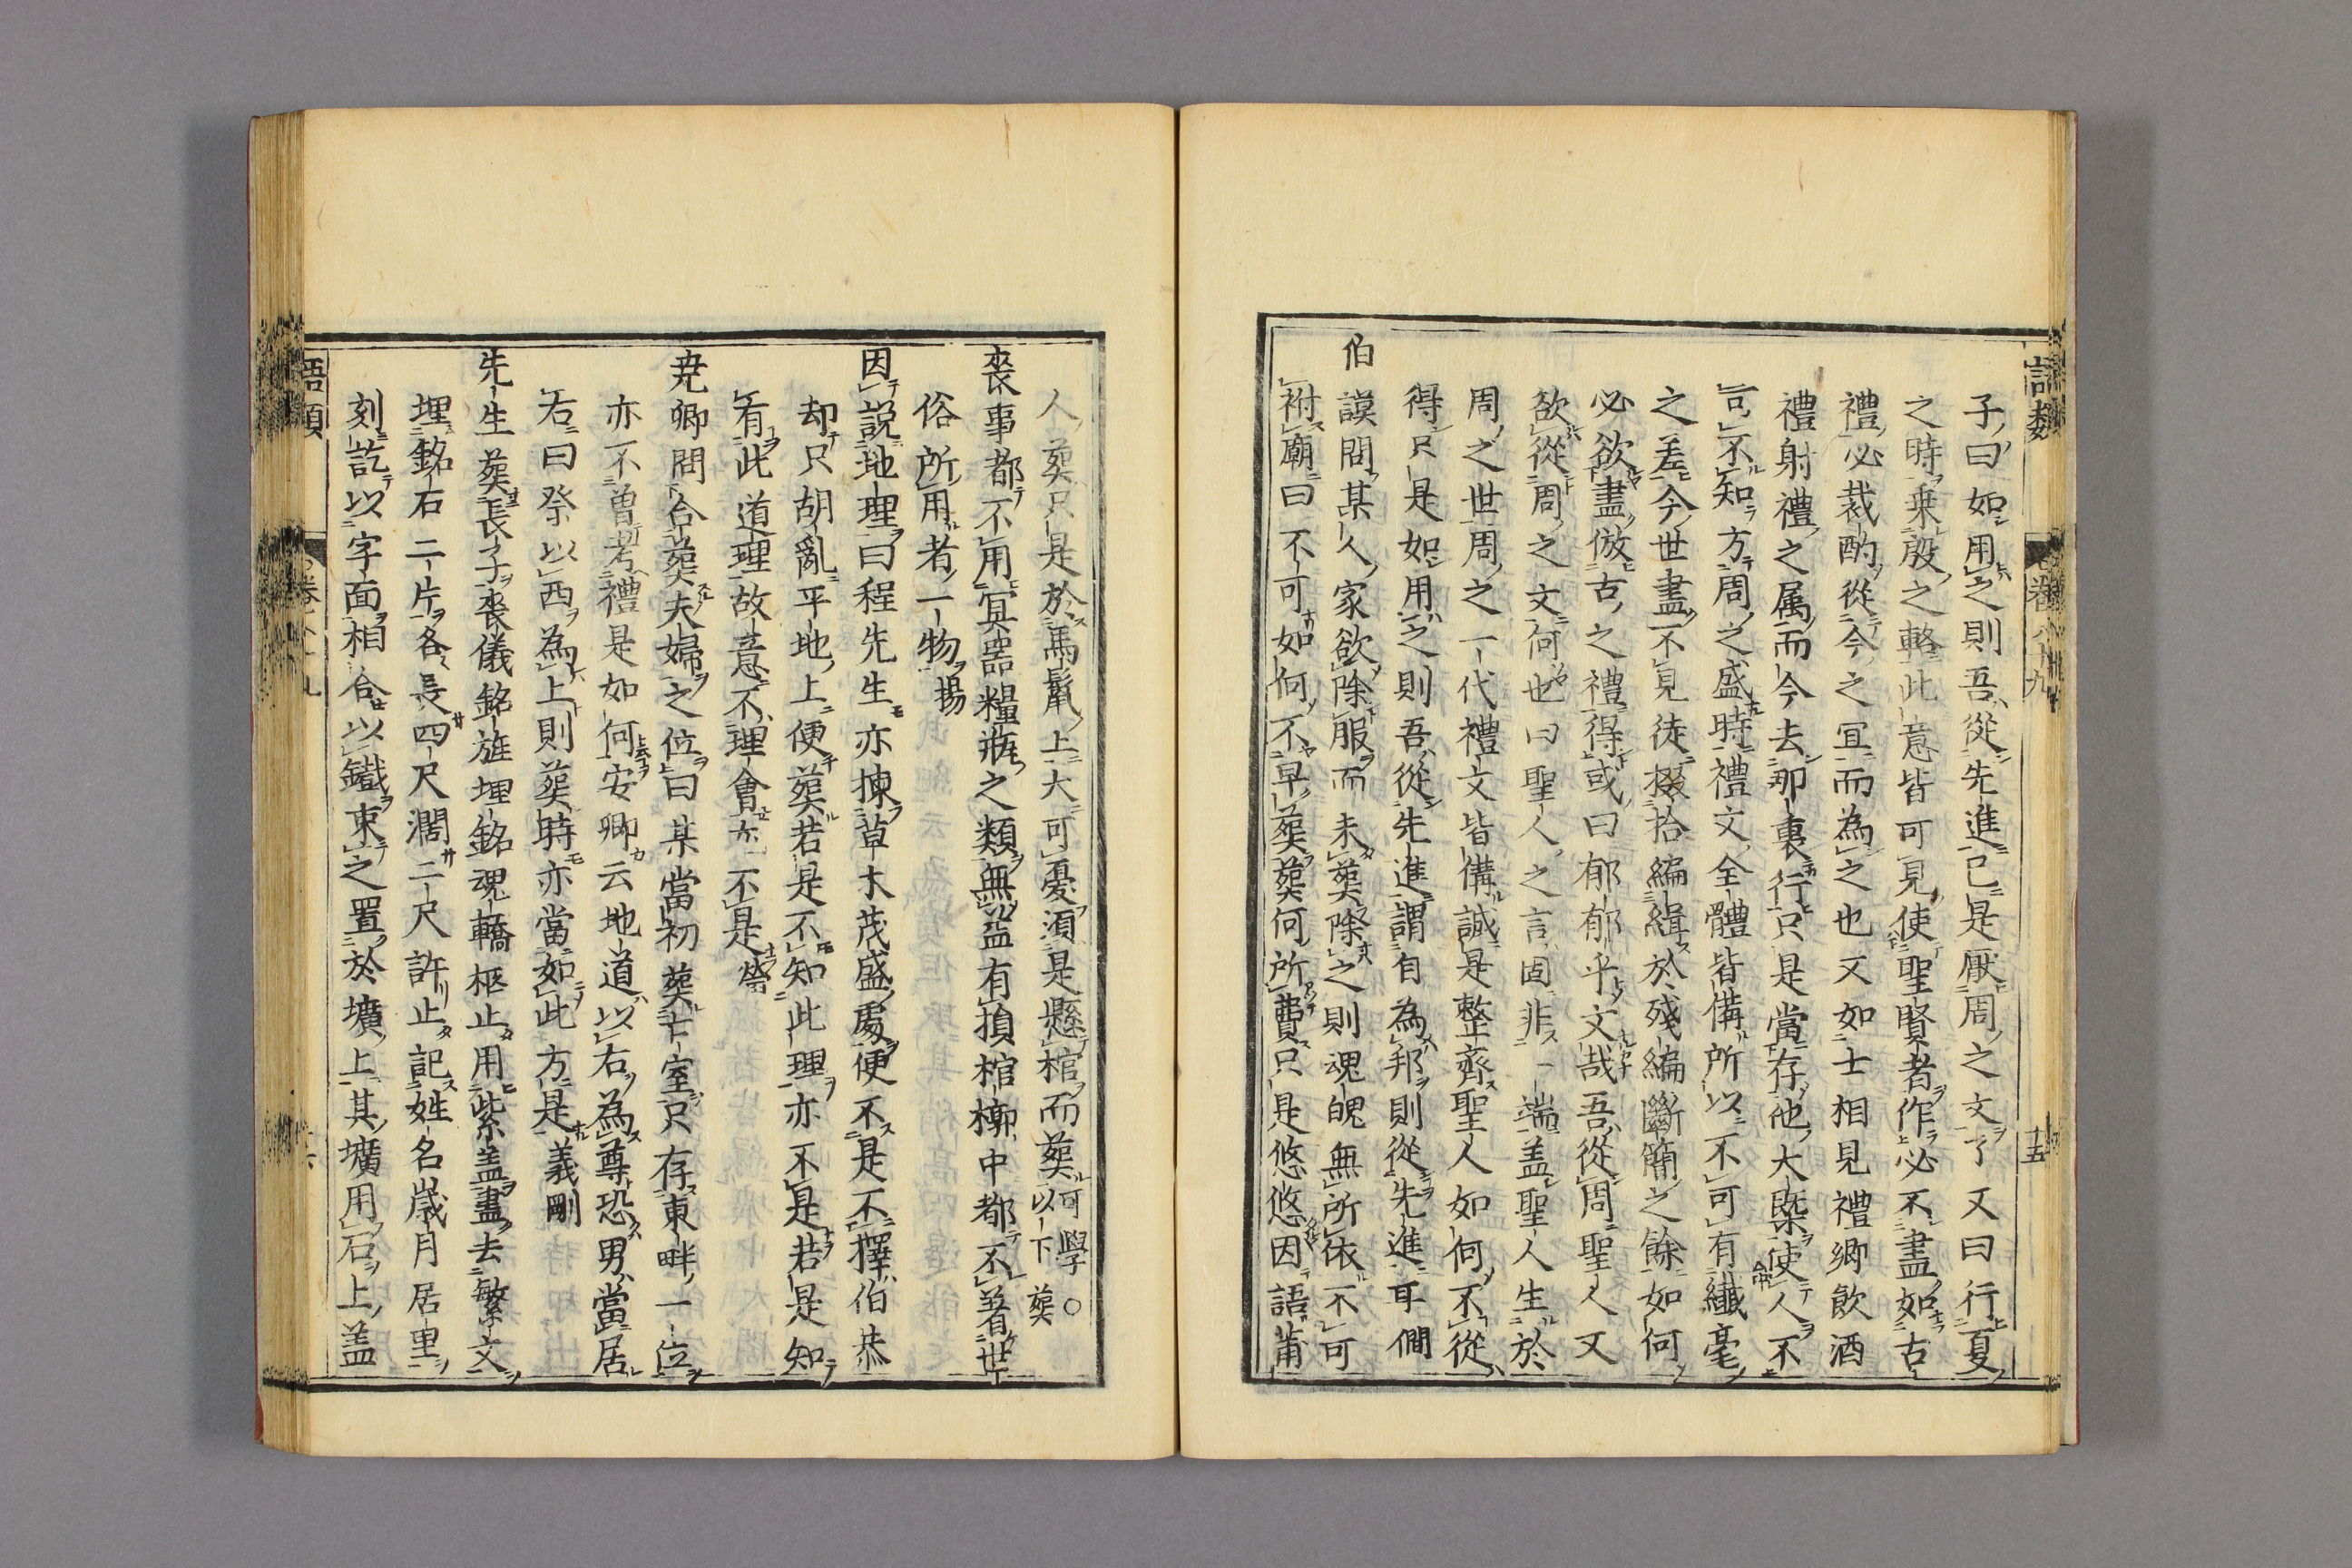 語類
卷八十九
十五
子曰如用之則吾從先進已是厭周之文了又曰行夏
之時乘殷之輅此意皆可見使聖賢者作必不盡如古
禮必裁酌從今之宜而為之也又如士相見禮鄉飲酒
禮射禮之属而今去那裏行只是當存他大槩使人不
可不知方周之盛時禮文全體皆備所以不可有纖毫
之差今世盡不見徒掇拾編緝於殘編斷簡之餘如何
必欲盡倣古之禮得或曰郁郁乎文哉吾從周聖人又
欲從周之文何也曰聖人之言固非一端盖聖人生於
周之世周之一代禮文皆備誠是整齊聖人如何不從
得只是如用之則吾從先進謂自為邦則從先進耳僩
伯謨問某人家欲除服而未葬除之則魂魄無所依不可
祔廟曰不可如何不早葬葬何所費只是悠悠因語莆
人葬只是於馬鬣上大可憂湏是懸棺而葬可學○以下葬
喪事都不用冥器糧瓶之類無益有損棺槨中都不著世
俗所用者一物揚
因說地理曰程先生亦揀草木茂盛處便不是不擇伯恭
却只胡亂平地上便葬若是不知此理亦不是若是知
有此道理故意不理會尤不是㷼
堯卿問合葬夫婦之位曰某當初葬亡室只存東畔一位
亦不曾考禮是如何安卿云地道以右為尊恐男當居
右曰祭以西為上則葬時亦當如此方是義剛
先生葬長子喪儀銘旌埋銘魂轎柩止用紫盖盡去繁文
埋銘石二片各長四尺濶二尺許止記姓名歲月居里
刻訖以字面相合以鐵束之置於壙上其壙用石上盖
語類